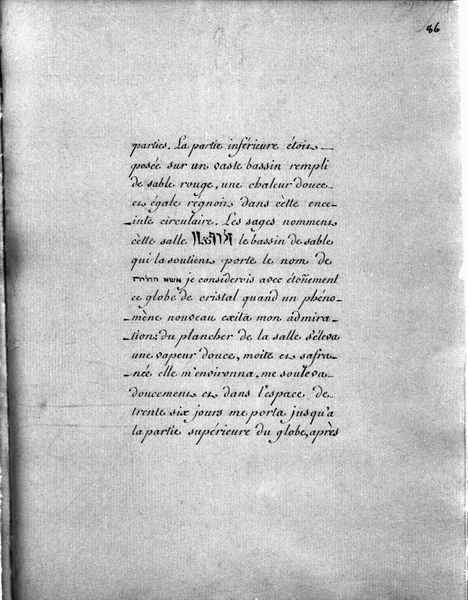 86
parties. La partie inférieure étoit
posée sur un vaste bassin rempli
de sable rouge, une chaleur douce
et égale regnoit dans cétte ence_
_inte circulaire. Les sages nomment
cétte salle le bassin de sable
qui la soutient porte le nom de
je considerois avec étoñement
ce globe de cristal quand un phéno_
_mène nouveau exita mon admira_
_tion: du plancher de la salle s'éleva
une vapeur douce, moite et safra_
_née élle m'environna, me souleva
doucement et dans l'espace de
trente six jours me porta jusqu'a
la partie supérieure du globe, après